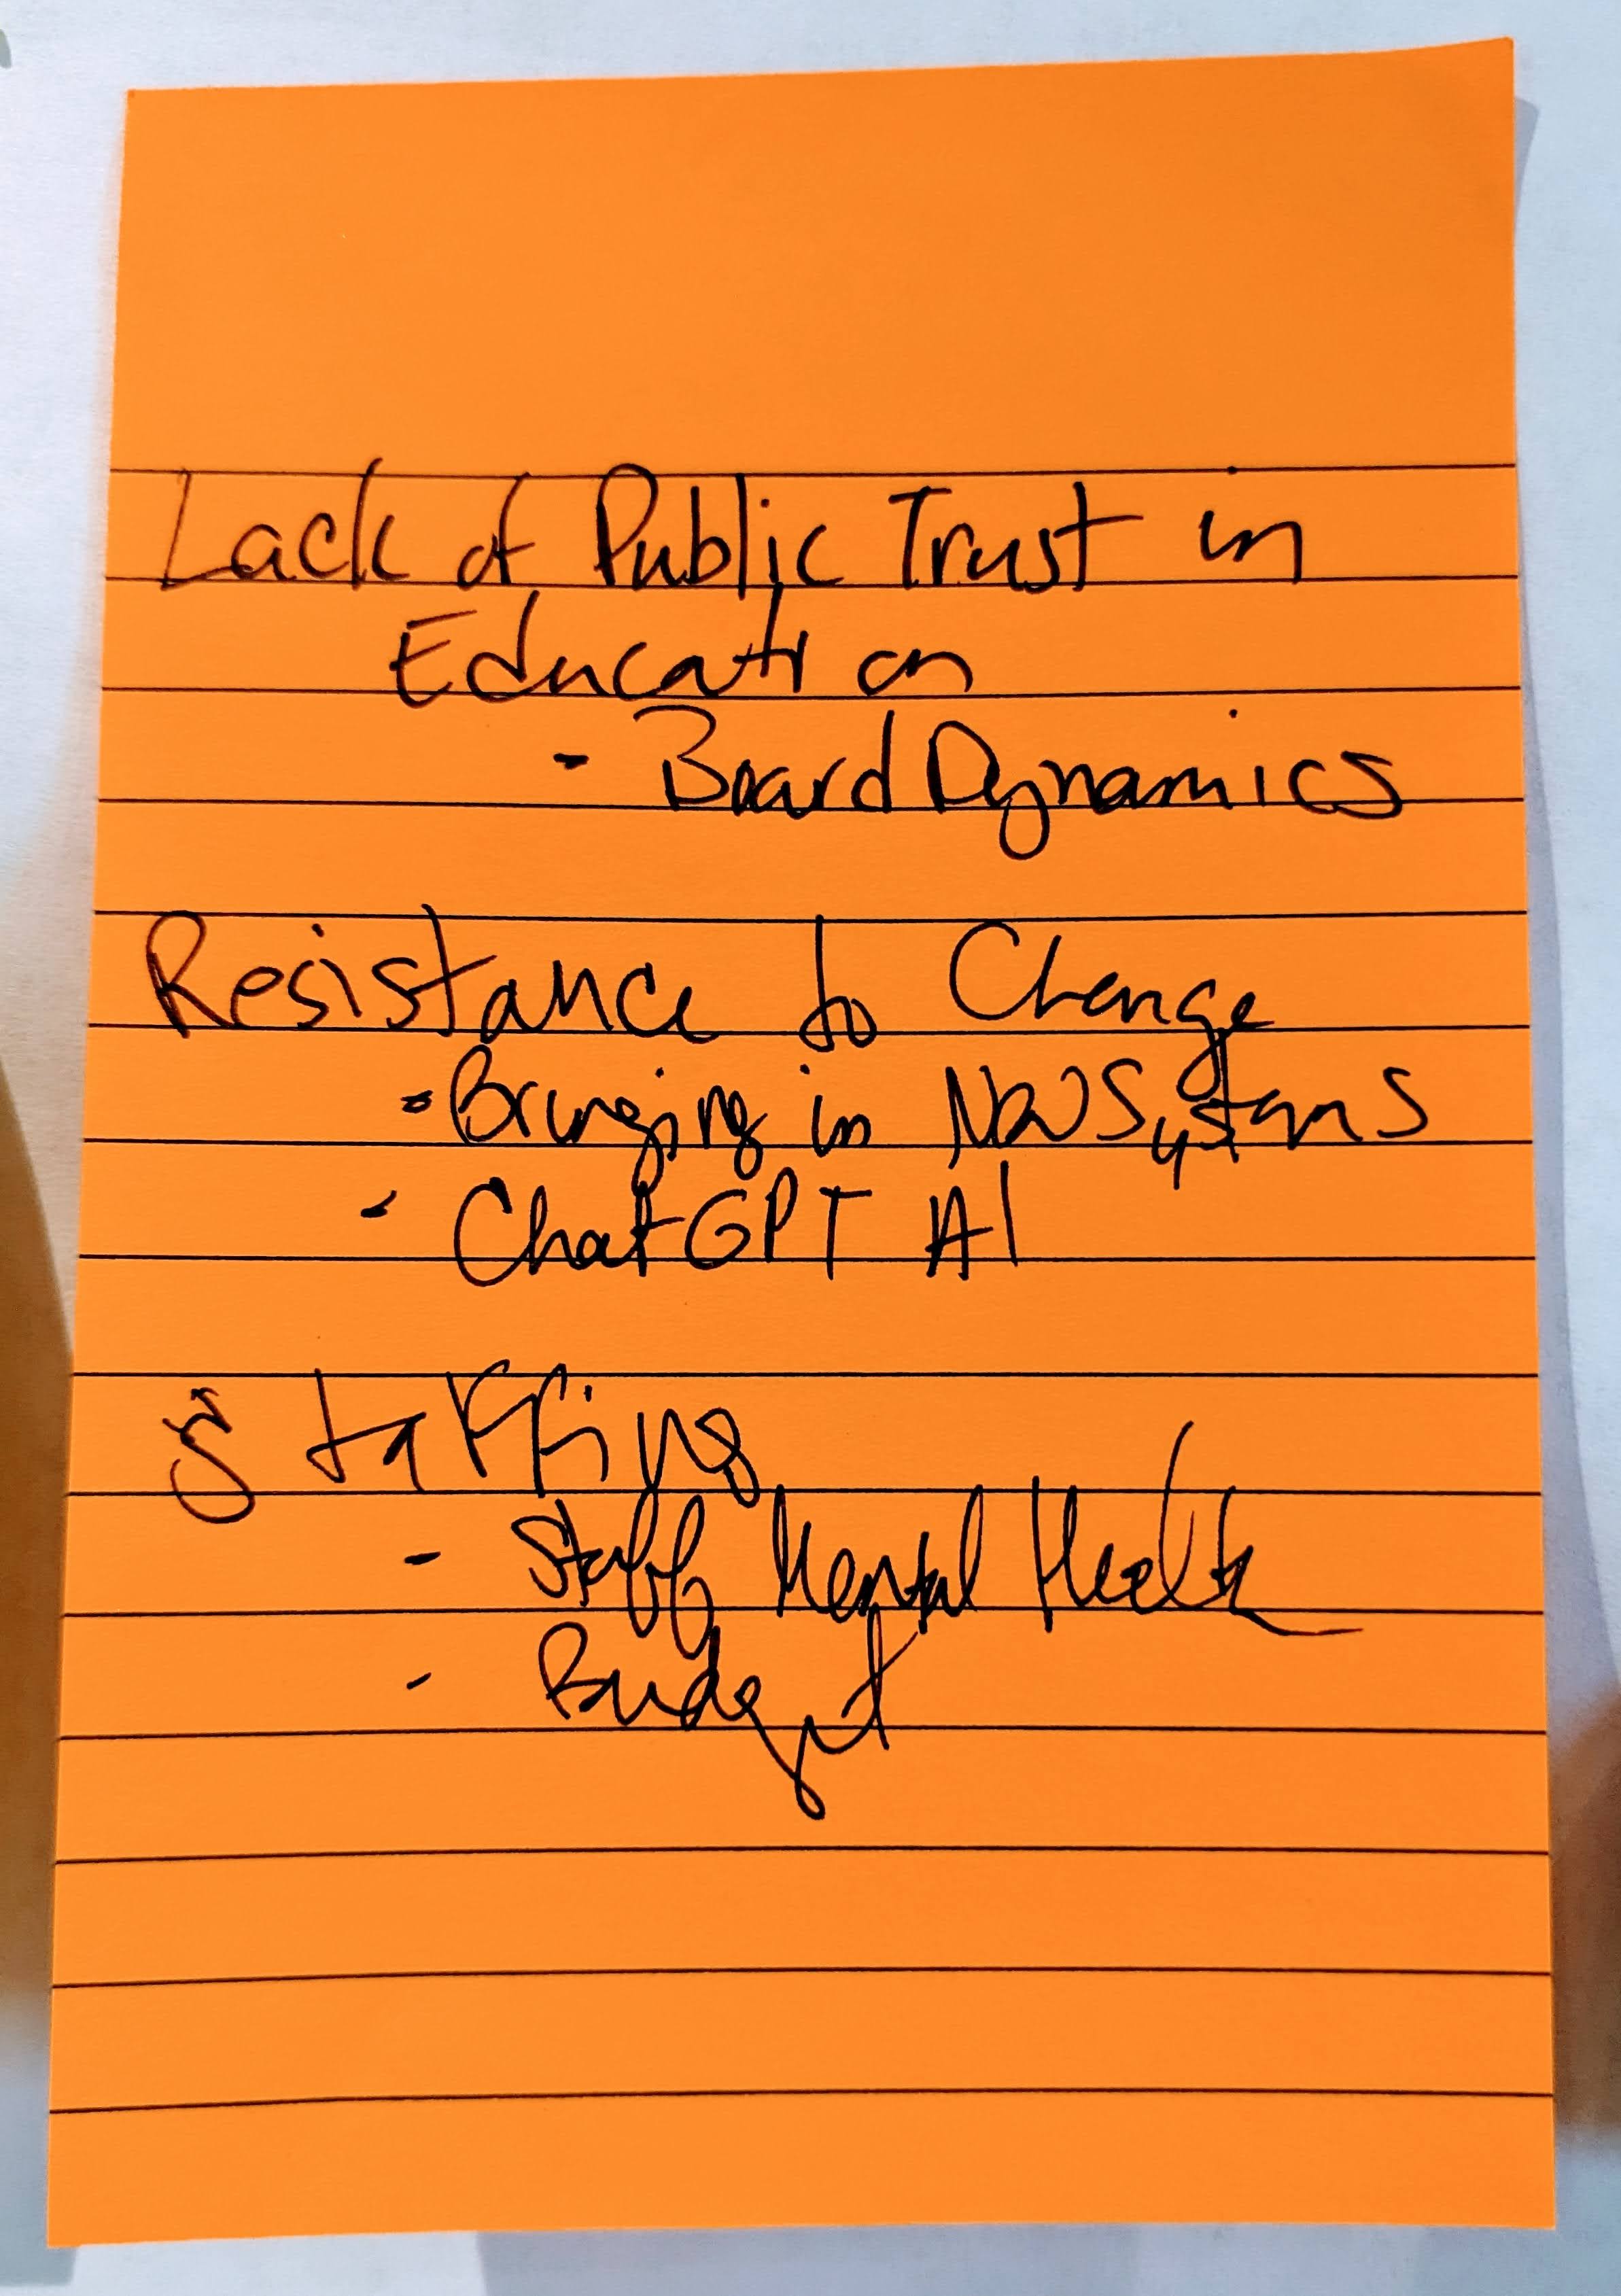 Lack of Public Trust in
Education
- Board Dynamics
Resistance to Change
- Bringing in New Systems
- ChatGPT AI
Staffing
- Staff Mental Health
- Budget